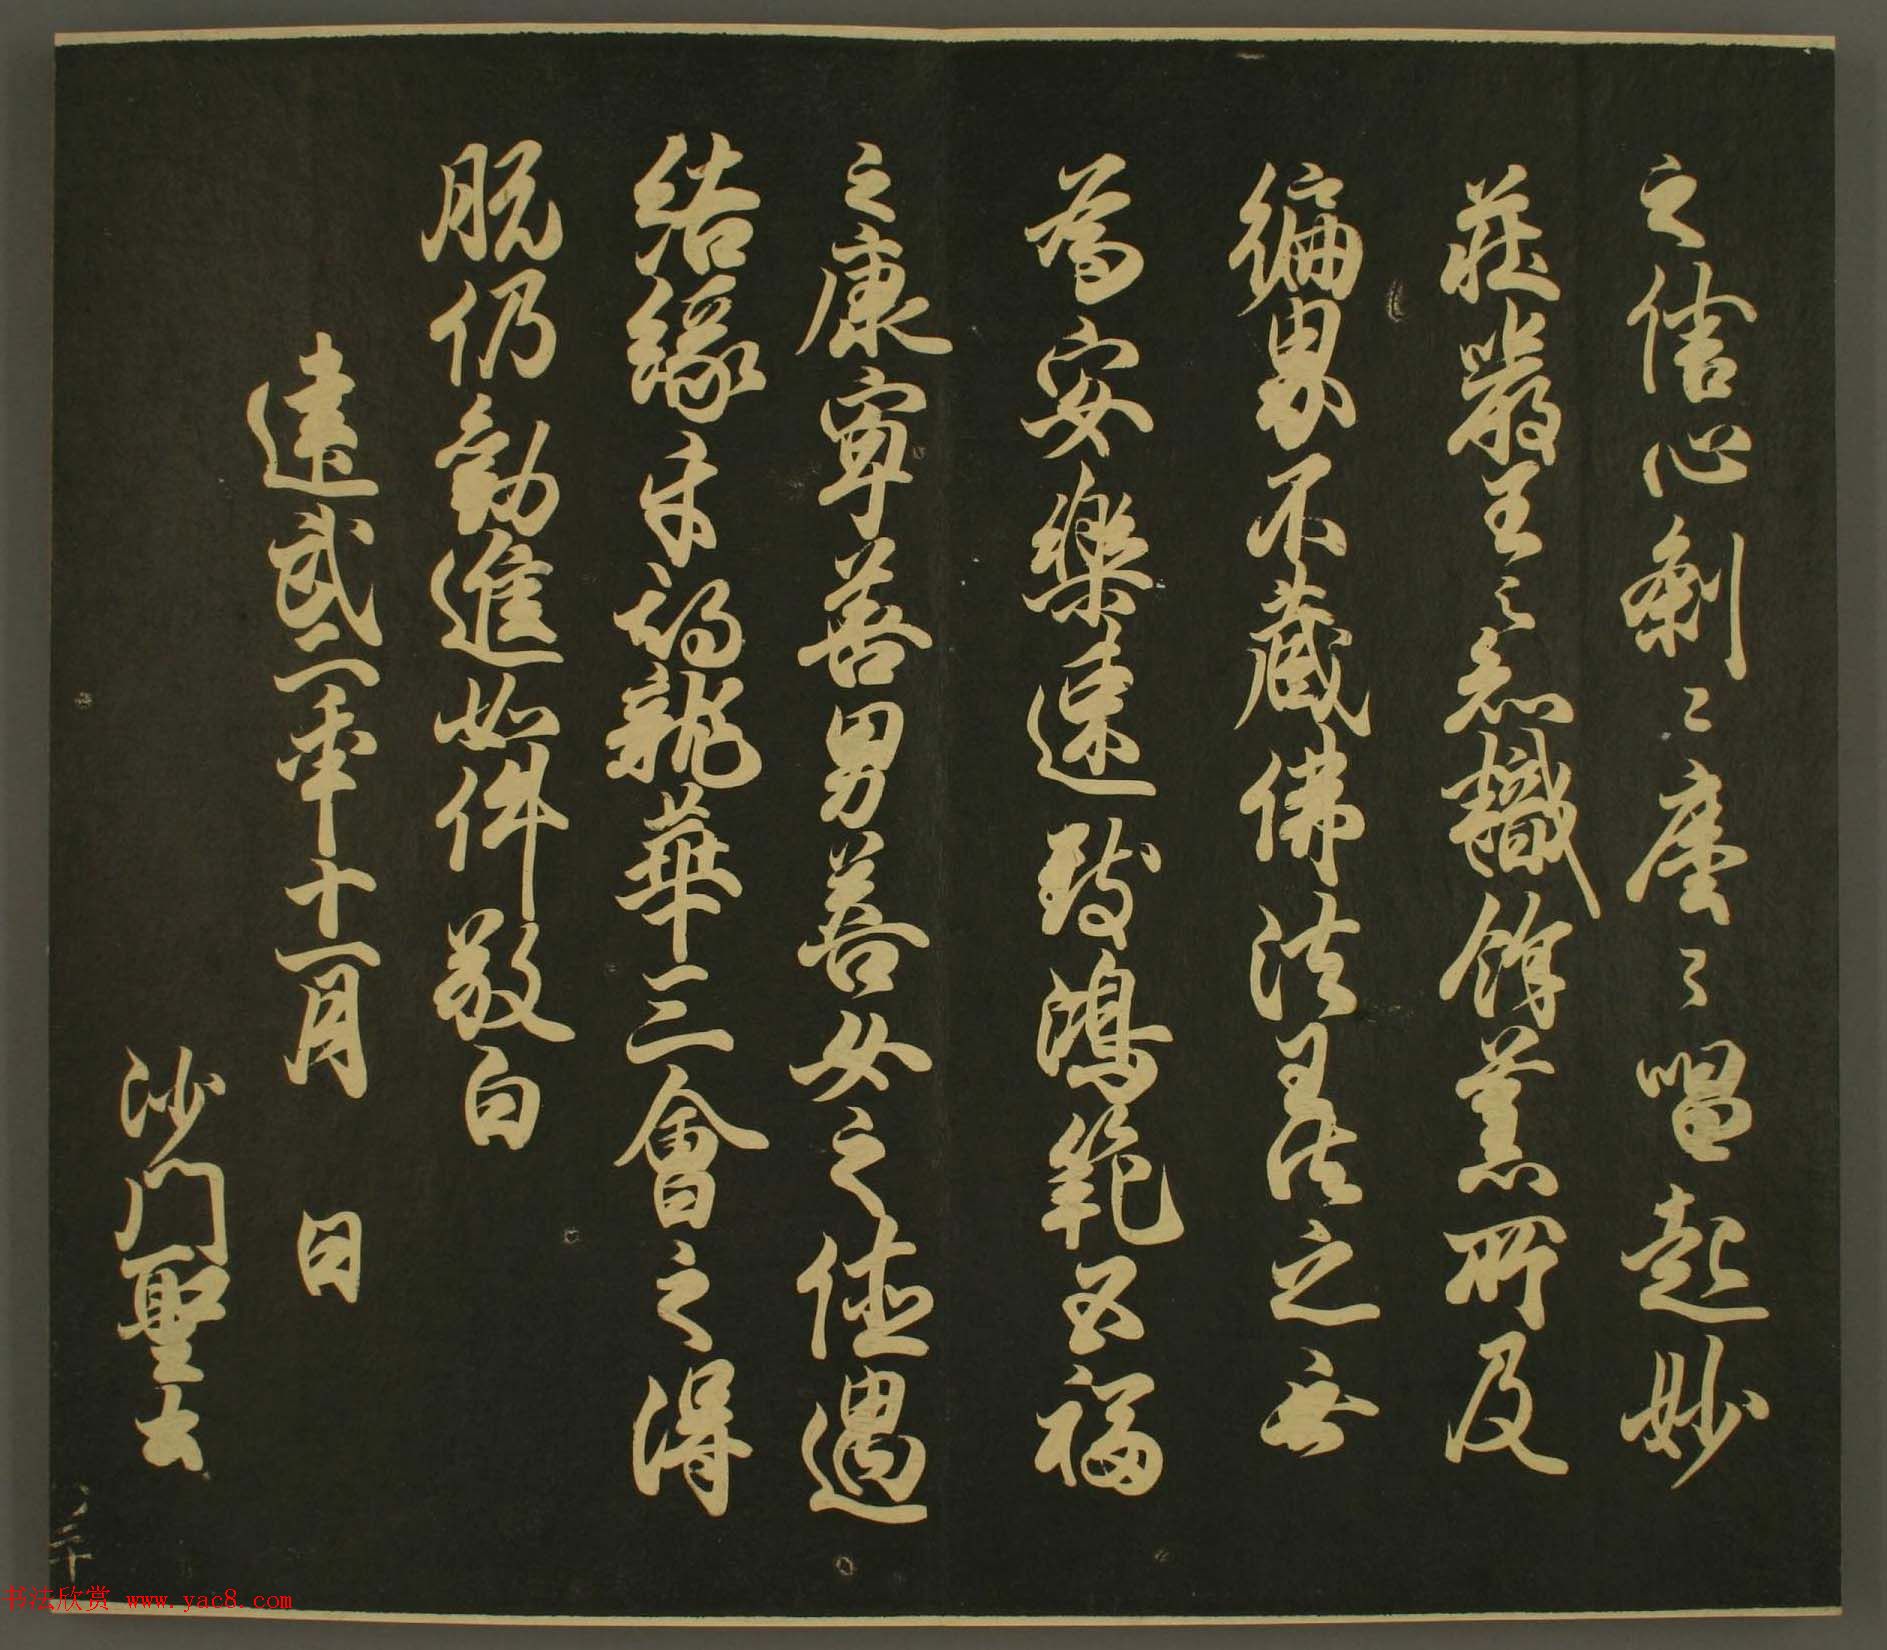 之信心剎〻塵〻唱起妙
莊嚴王之懇懺餘薰所及
徧界不藏佛法盡法之無
為安樂速致鴻範五福
之康寧善男善女之值遇
結緣未為龍華三會之得
脫仍勸進如件敬白
建武二年十一月 日
沙門聖云
三十
书法欣赏 www.yac8.com